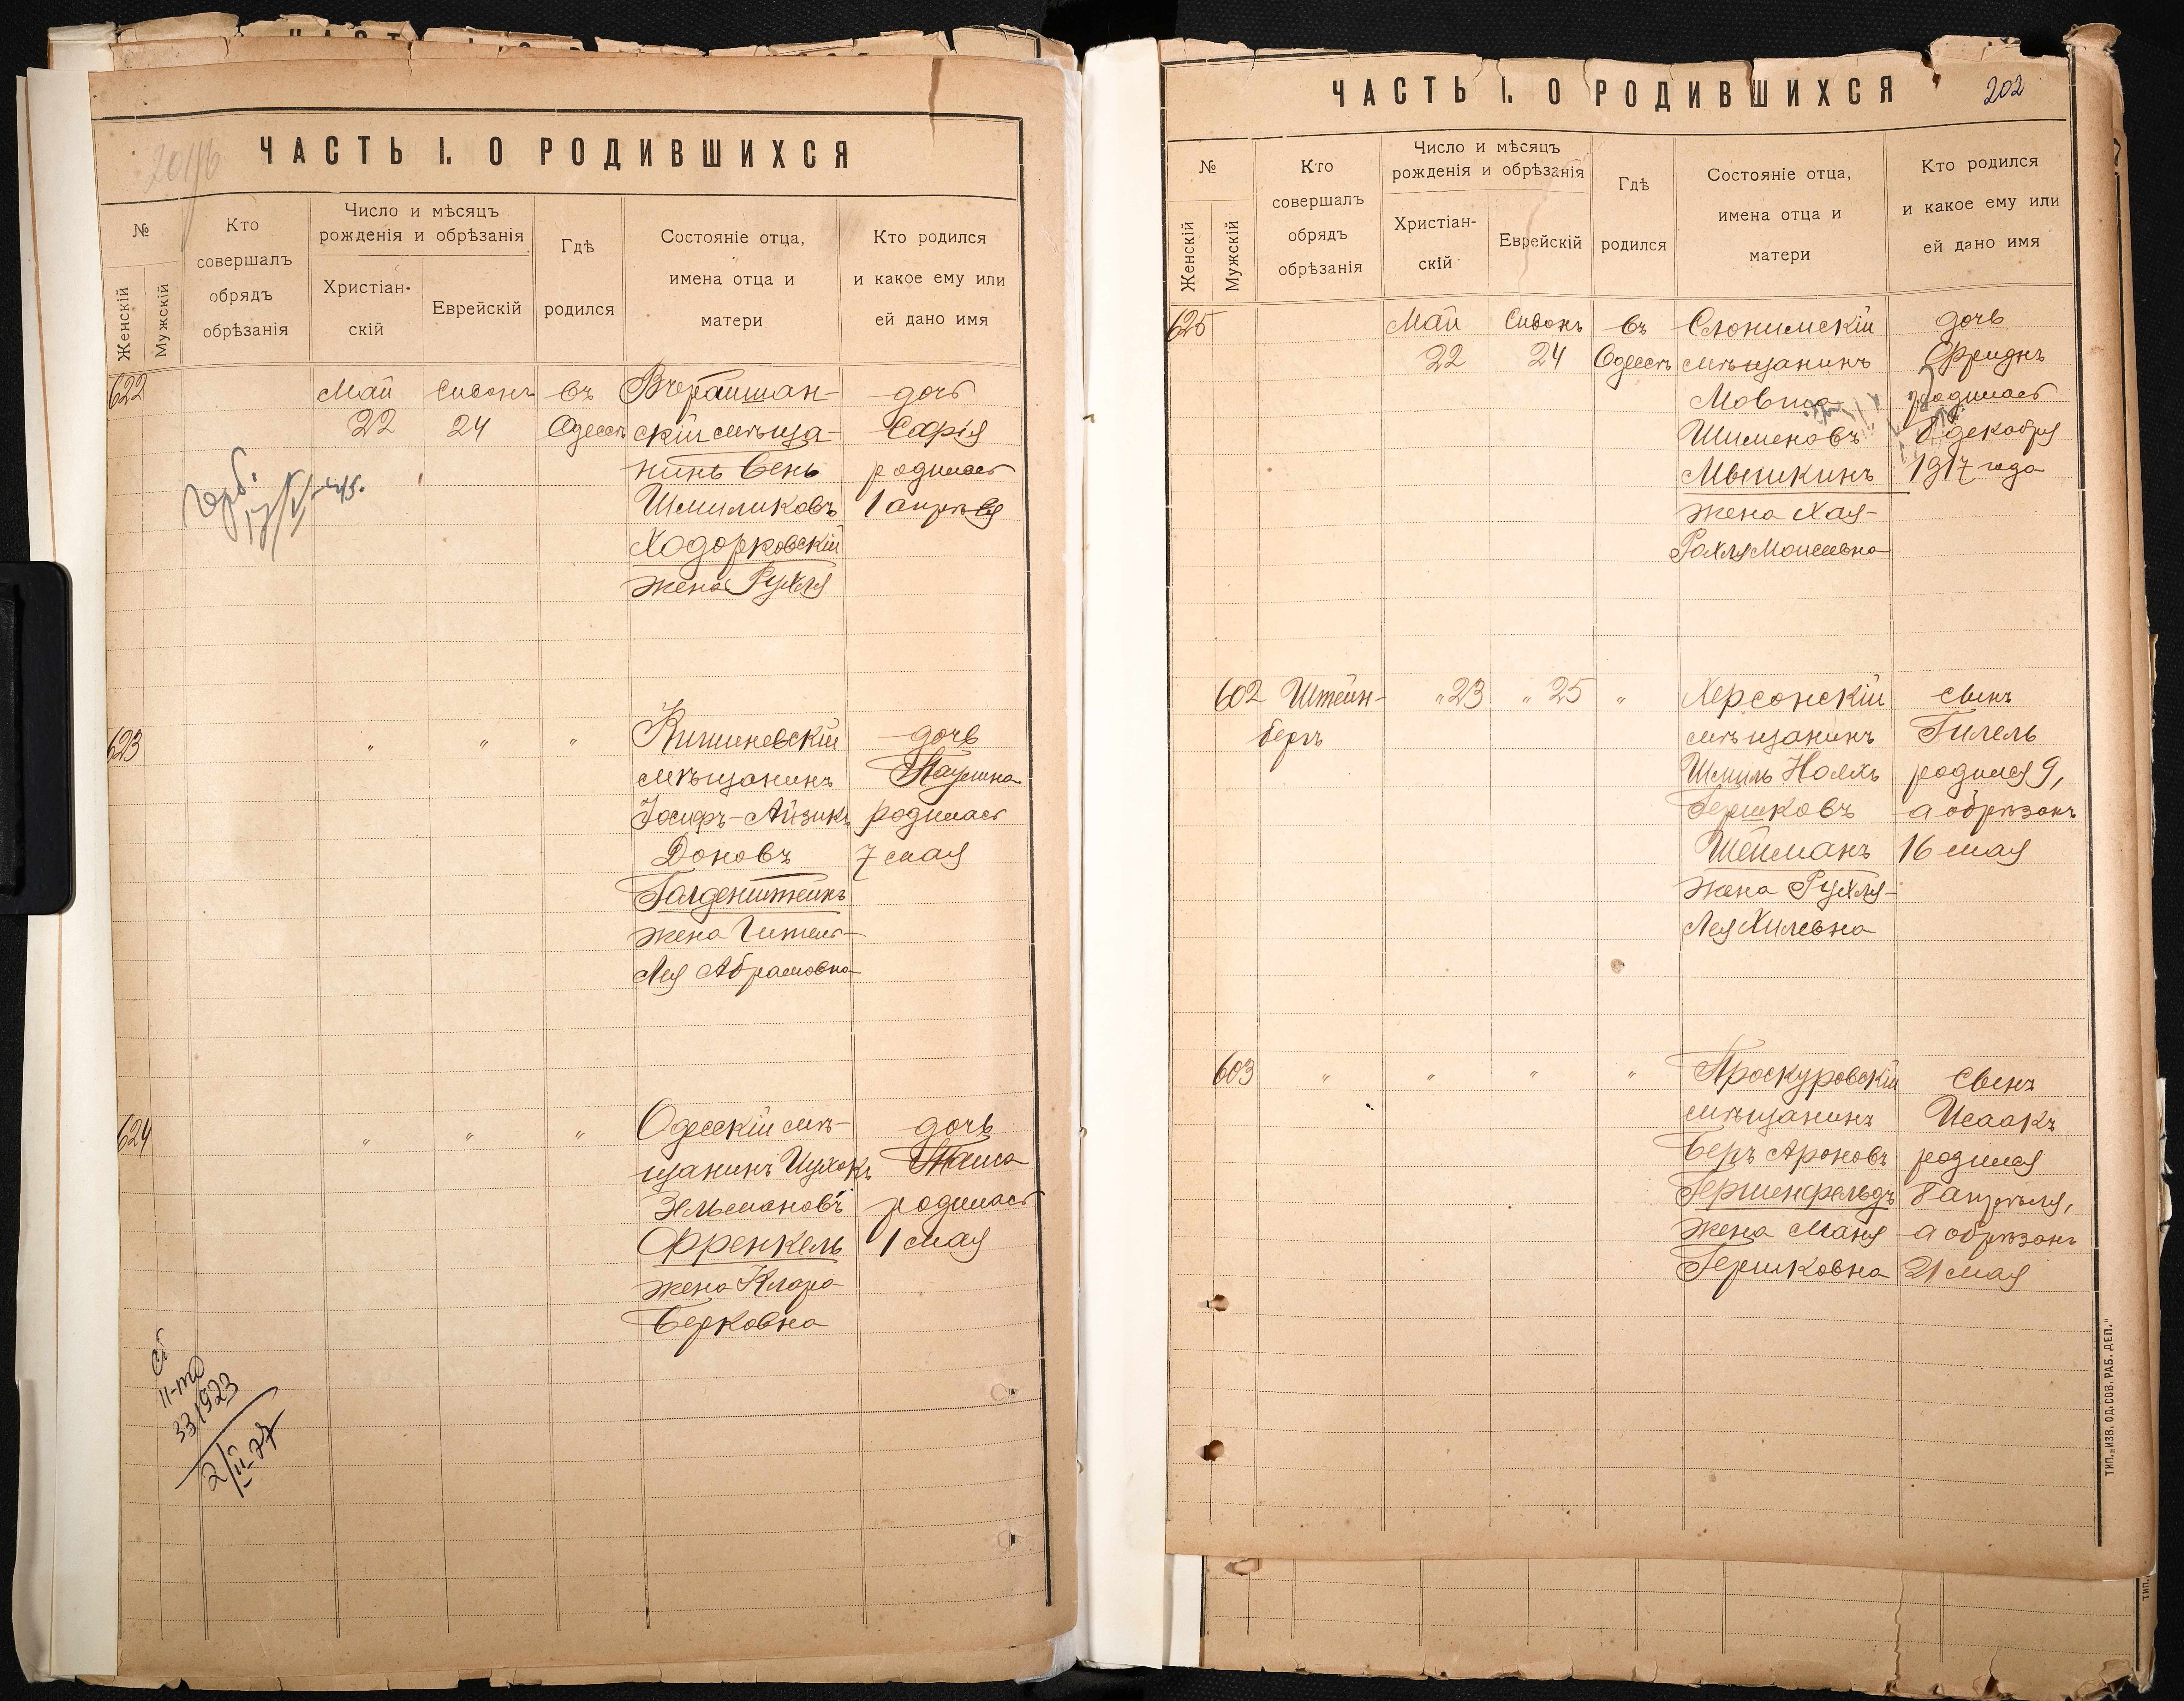 ЧАСТЬ I. О РОДИВШИХСЯ
№
Женскій
Мужскій
Кто
совершалъ
обрядъ
обрѣзанія
Число и мѣсяцъ
рожденія и обрѣзанія
Христіан-
скій
Еврейскій
Гдѣ
родился
Состояніе отца,
имена отца и
матери
Кто родился
и какое ему или
ей дано имя
622
Май
22
Сивонъ
24
въ
Одессѣ
скій мѣща-
нинъ Бенъ
Шмиликовъ
Ходорковскій
жена Рухля
дочь
Сарія
родилась
1 апрѣля
623
„
„
„
Кишиневскій
мѣщанинъ
Іосифъ-Айзикъ
Доновъ
Галденштейнъ
жена Гитель-
Лея Абрамовна
дочь
Паулина
родилась
7 мая
624
„
„
„
Одесскій мѣ-
щанинъ Ицхокъ
Зельмановъ
Френкель
жена Клара
Берковна
дочь
родилась
1 мая
II-то
331923
2/II-77
ЧАСТЬ I. О РОДИВШИХСЯ
202
№
Женскій
Мужскій
Кто
совершалъ
обрядъ
обрѣзанія
Число и мѣсяцъ
рожденія и обрѣзанія
Христіан-
скій
Еврейскій
Гдѣ
родился
Состояніе отца,
имена отца и
матери
Кто родился
и какое ему или
ей дано имя
625
Май
22
Сивонъ
24
въ
Одессѣ
Слонимскій
мѣщанинъ
Мовша
Шименовъ
Мышкинъ
жена Хая-
Рохля Моисеевна
дочь
Фридъ
родилась
декабря
1917 года
602
Штейн-
бергъ
„ 23
„ 25
„
Херсонскій
мѣщанинъ
Шмиль Нояхъ
Гершковъ
Шейманъ
жена Рухля-
Лея Хилевна
сынъ
Гилель
родился 9,
а обрѣзанъ
16 мая
603
„
„
„
„
Проскуровскій
мѣщанинъ
Беръ Ароновъ
Гершенфельдъ
жена Маня
Гершковна
сынъ
Исаакъ
родился
8 апрѣля,
а обрѣзанъ
21 мая
ТИП. „ИЗВ. ОД. СОВ. РАБ. ДЕП."